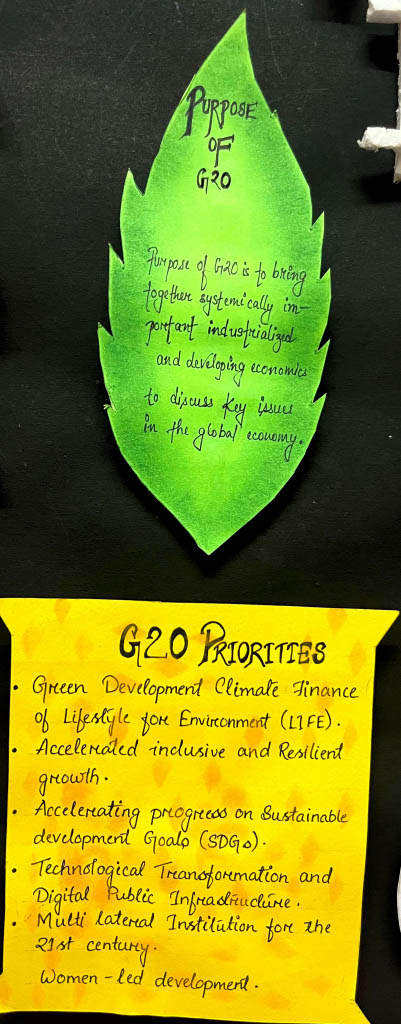 PURPOSE
OF
G20
Purpose of G20 is to bring
together systemically im-
portant industrialized
and developing economics
to discuss key issues
in the global economy.
G20 PRIORITIES
• Green Development Climate Finance
of Lifestyle for Environment (LIFE).
• Accelerated inclusive and Resilient
growth.
• Accelerating progress on Sustainable
development Goals (SDGs).
• Technological Transformation and
Digital Public Infrastructure.
• Multi lateral Institution for the
21st century.
Women-led development.